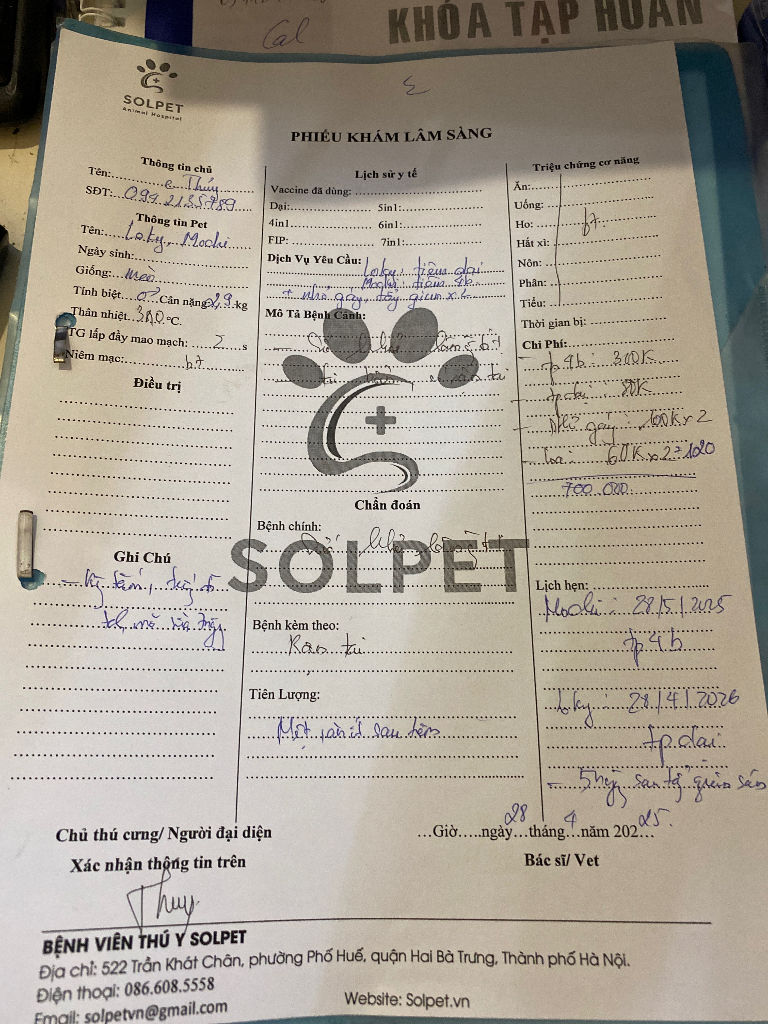 Cal
KHÓA TẬP HUẤN
SOLPET
Animal Hospital
PHIẾU KHÁM LÂM SÀNG
Thông tin chủ
Tên: c Thúy
SĐT: 0942135789
Thông tin Pet
Tên: Loky, Mochi
Ngày sinh:
Giống: mèo
Tính biệt Cân nặng 2,9 kg
Thân nhiệt °C.
TG lấp đầy mao mạch: 2 s
Niêm mạc: bt
Điều trị
Ghi Chú
Lịch sử y tế
Vaccine đã dùng:
Dại: 5in1:
4in1 6in1:
FIP: 7in1:
Dịch Vụ Yêu Cầu: Loky: tiêm dại
Mochi tiêm 4b
+ nhỏ gáy, tẩy giun x 2
Mô Tả Bệnh Cảnh:
Chẩn đoán
Bệnh chính:
SOLPET
Bệnh kèm theo:
Rận tai
Tiên Lượng:
Mệt, sau tiêm
Triệu chứng cơ năng
Ăn:
Uống:
Ho: bt
Hắt xì:
Nôn:
Phân:
Tiểu:
Thời gian bị:
Chi Phí:
- tp 4b: 300K
- tp dại: 80K
- Nhỏ gáy: 100K x 2
- 60K x 2 = 120
700.000
Lịch hẹn:
Mochi: 28/5/2025
tp 4b
Loky: 28/4/2026
tp dại
- 5 ngày sau tẩy giun sán
Chủ thú cưng/ Người đại diện
Xác nhận thông tin trên
Thuy
...Giờ.....ngày 28 tháng 4 năm 2025
Bác sĩ/ Vet
BỆNH VIÊN THÚ Y SOLPET
Địa chỉ: 522 Trần Khát Chân, phường Phố Huế, quận Hai Bà Trưng, Thành phố Hà Nội.
Điện thoại: 086.608.5558
Email: solpetvn@gmail.com Website: Solpet.vn